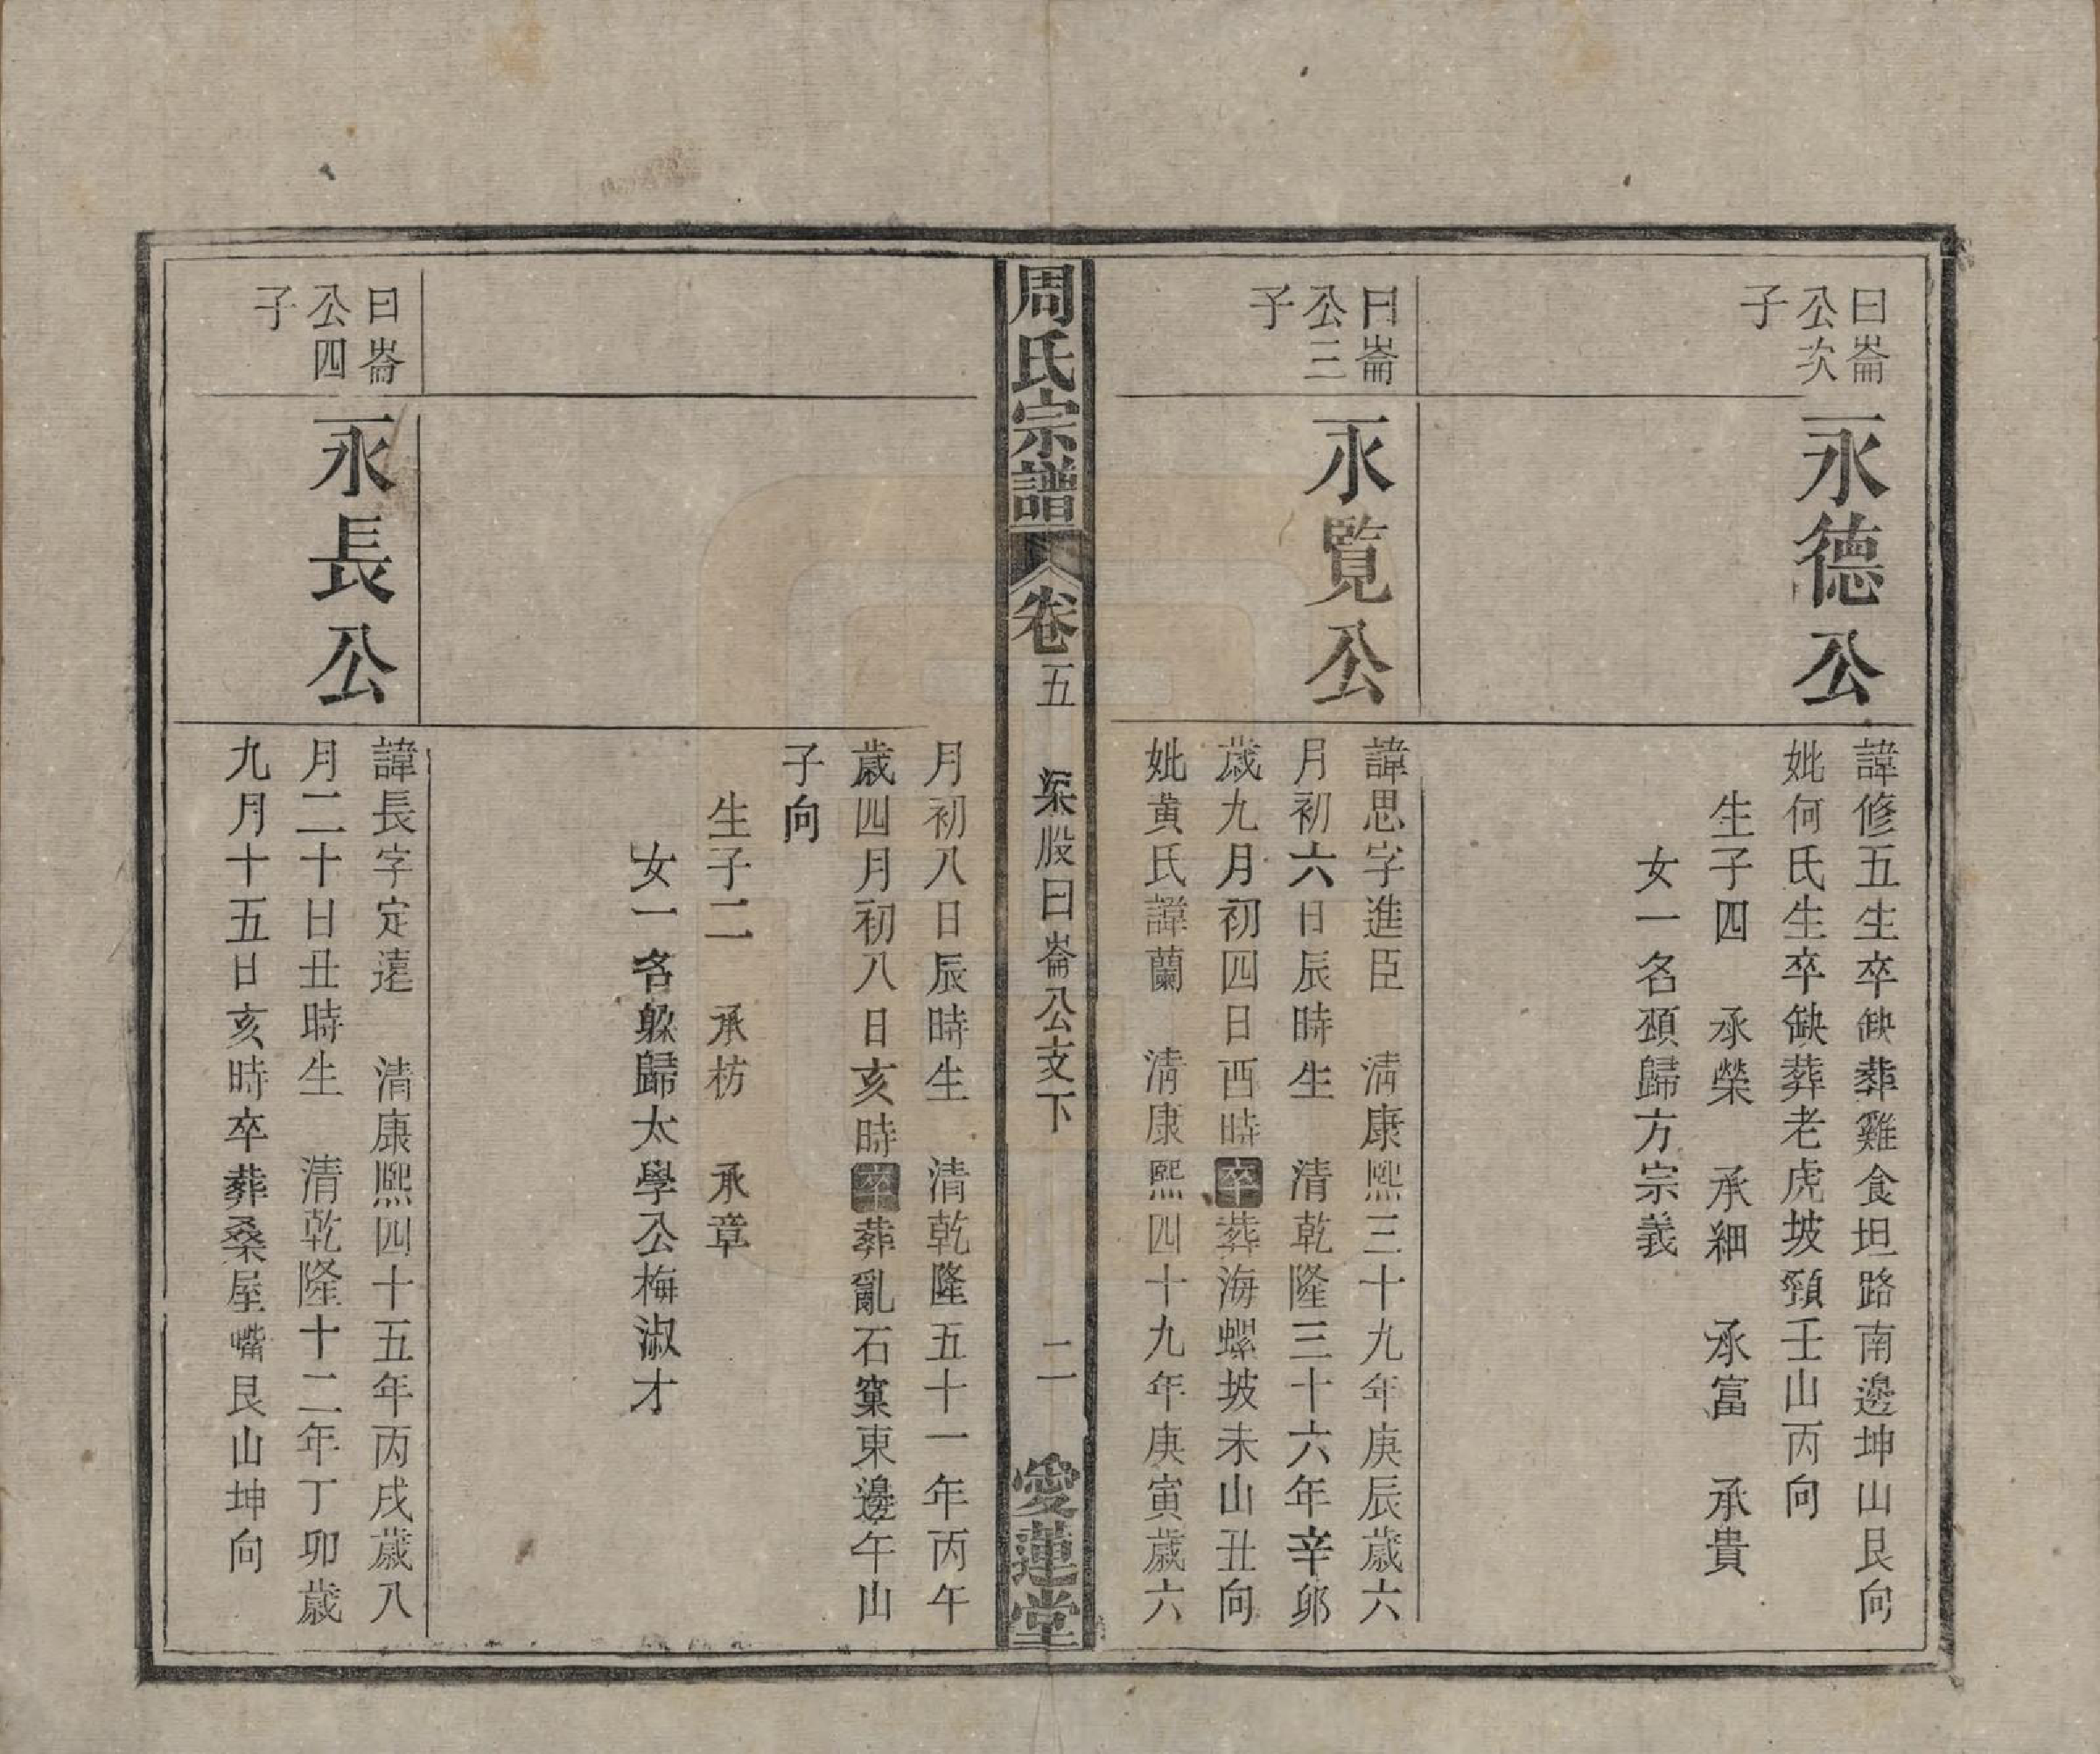 曰崙
公次
子
永德公
諱修五生卒缺葬雞食坦路南邊坤山艮向
妣何氏生卒缺葬老虎坡頸壬山丙向
生子四　承榮　承細　承富　承貴
女一名頦歸方宗義
曰崙
公三
子
永覧公
諱思字進臣　清康熙三十九年庚辰歲六
月初六日辰時生　清乾隆三十六年辛卯
歲九月初四日酉時卒葬海螺坡未山丑向
妣黄氏諱蘭　清康熙四十九年庚寅歲六
周氏宗譜　卷五　栗股曰崙公支下　二　愛蓮堂
月初八日辰時生　清乾隆五十一年丙午
歲四月初八日亥時卒葬亂石窠東邊午山
子向
生子二　承枋　承章
女一名躲歸太學公梅淑才
曰崙
公四
子
永長公
諱長字定遠　清康熙四十五年丙戌歲八
月二十日丑時生　清乾隆十二年丁卯歲
九月十五日亥時卒葬桑屋嘴艮山坤向